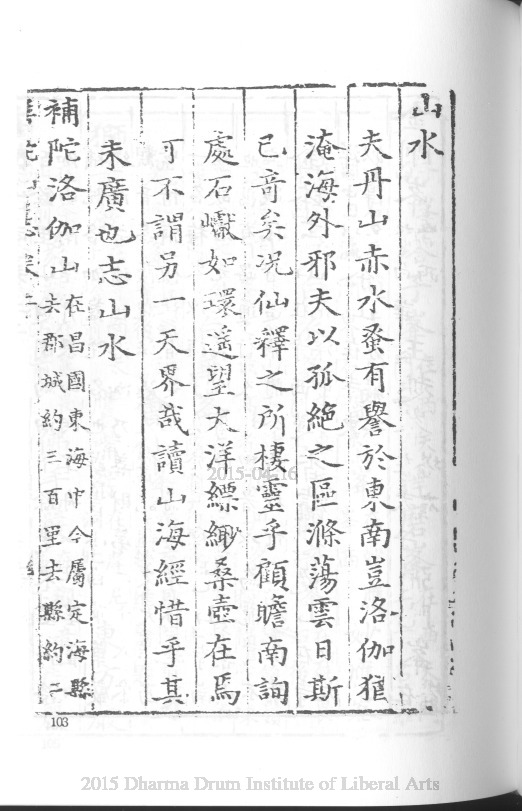 山水
夫丹山赤水蚤有譽於東南豈洛伽猥
淹海外邪夫以孤絶之區滌蕩雲日斯
已奇矣况仙釋之所棲靈乎顧瞻南詢
處石巘如環遥望大洋縹緲桑壺在焉
可不謂另一天界哉讀山海經惜乎其
未廣也志山水
補陀洛伽山在昌國東海中今屬定海縣
去郡城約三百里去縣約二
103
2015-04-16
2015 Dharma Drum Institute of Liberal Arts